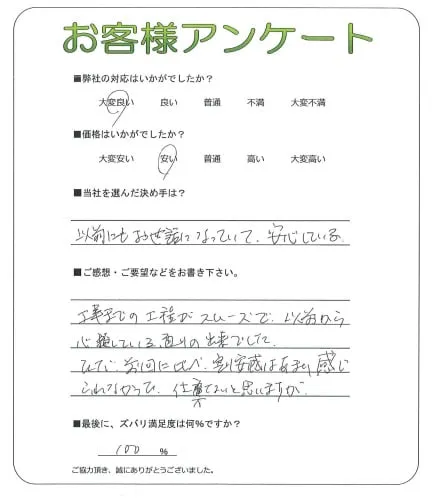 お客様アンケート
■弊社の対応はいかがでしたか？
大変良い 良い 普通 不満 大変不満
■価格はいかがでしたか？
大変安い 安い 普通 高い 大変高い
■当社を選んだ決め手は？
以前にもお世話になっていて、安心している
■ご感想・ご要望などをお書き下さい。
工事までの工程がスムーズで、以前から
信頼している通りの出来でした
ただ、前回に比べ、割安感はあまり感じ
られなかった、仕方ないと思いますが
■最後に、ズバリ満足度は何％ですか？
100 ％
ご協力頂き、誠にありがとうございました。